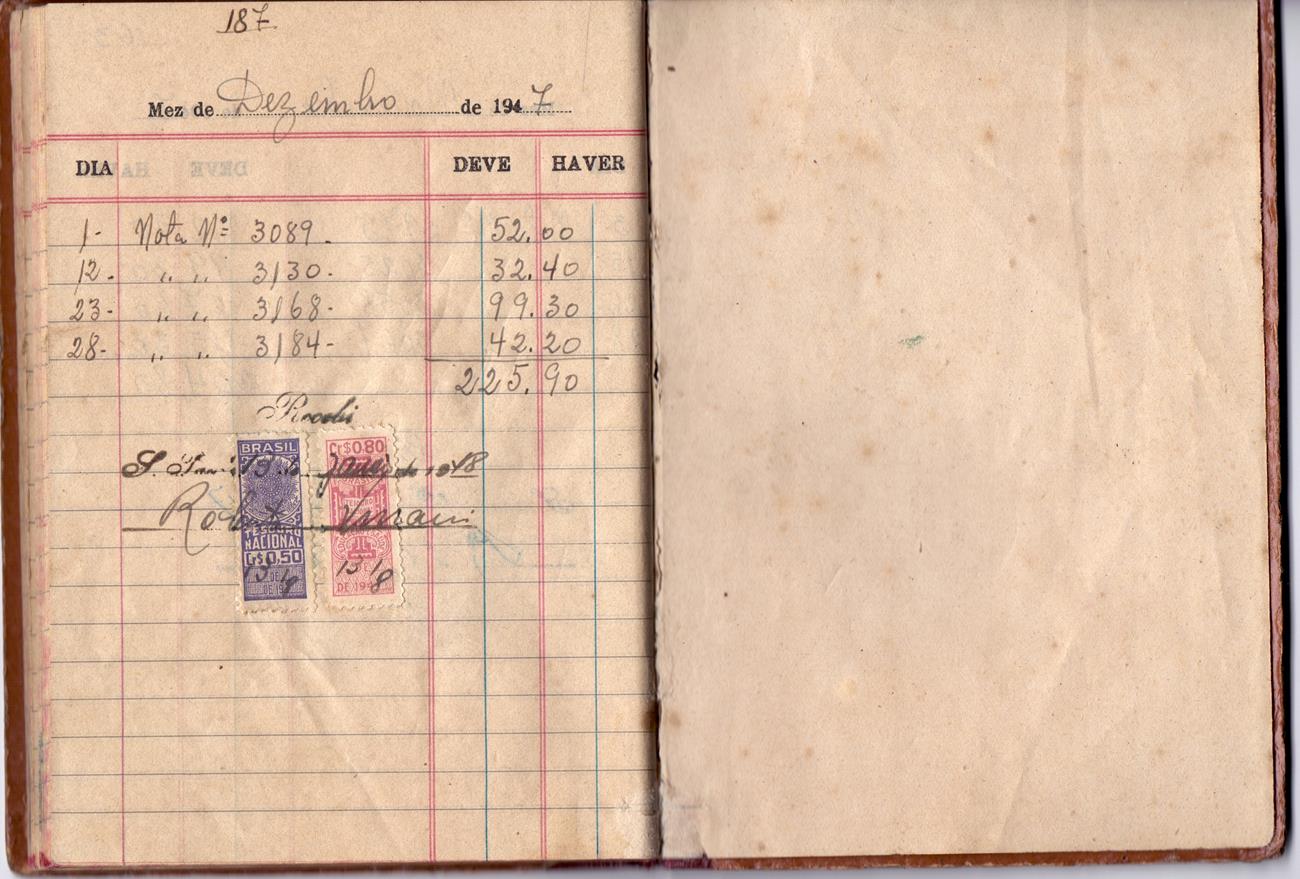 187
Mez de Dezembro de 1947
DIA DEVE HAVER
1- Nota Nº 3089. 52.00
12. " " 3130. 32.40
23- " " 3168- 99.30
28- " " 3184- 42.20
225.90
Recebi
BRASIL Cr$0,80
S. 13 de Janei de 1948
Roberto
TESOURO
NACIONAL
Cr$0,50
13 1 8 13 1 8
DE 194